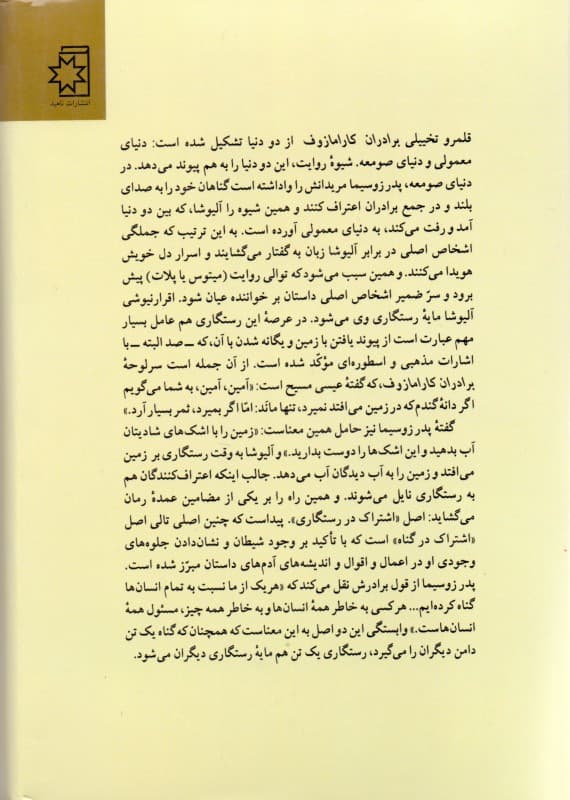 انتشارات ناهید
قلمرو تخییلی برادران کارامازوف از دو دنیا تشکیل شده است: دنیای
معمولی و دنیای صومعه. شیوهٔ روایت، این دو دنیا را به هم پیوند می‌دهد. در
دنیای صومعه، پدر زوسیما مریدانش را واداشته است گناهان خود را به صدای
بلند و در جمع برادران اعتراف کنند و همین شیوه را آلیوشا، که بین دو دنیا
آمد و رفت می‌کند، به دنیای معمولی آورده است. به این ترتیب که جملگی
اشخاص اصلی در برابر آلیوشا زبان به گفتار می‌گشایند و اسرار دل خویش
هویدا می‌کنند. و همین سبب می‌شود که توالی روایت (میتوس یا پلات) پیش
برود و سرّ ضمیر اشخاص اصلی داستان بر خواننده عیان شود. اقرارنیوشی
آلیوشا مایهٔ رستگاری وی می‌شود. در عرصهٔ این رستگاری هم عامل بسیار
مهم عبارت است از پیوند یافتن با زمین و یگانه شدن با آن، که ــ صد البته ــ با
اشارات مذهبی و اسطوره‌ای مؤکّد شده است. از آن جمله است سرلوحهٔ
برادران کارامازوف، که گفتهٔ عیسی مسیح است: «آمین، آمین، به شما می‌گویم
اگر دانهٔ گندم که در زمین می‌افتد نمیرد، تنها ماند: امّا اگر بمیرد، ثمر بسیار آرد.»
گفتهٔ پدر زوسیما نیز حامل همین معناست: «زمین را با اشک‌های شادیتان
آب بدهید و این اشک‌ها را دوست بدارید.» و آلیوشا به وقت رستگاری بر زمین
می‌افتد و زمین را به آب دیدگان آب می‌دهد. جالب اینکه اعتراف‌کنندگان هم
به رستگاری نایل می‌شوند. و همین راه را بر یکی از مضامین عمدهٔ رمان
می‌گشاید: اصل «اشتراک در رستگاری». پیداست که چنین اصلی تالی اصل
«اشتراک در گناه» است که با تأکید بر وجود شیطان و نشان‌دادن جلوه‌های
وجودی او در اعمال و اقوال و اندیشه‌های آدم‌های داستان مبرّز شده است.
پدر زوسیما از قول برادرش نقل می‌کند که «هریک از ما نسبت به تمام انسان‌ها
گناه کرده‌ایم... هرکسی به خاطر همهٔ انسان‌ها و به خاطر همه چیز، مسئول همهٔ
انسان‌هاست.» وابستگی این دو اصل به این معناست که همچنان که گناه یک تن
دامن دیگران را می‌گیرد، رستگاری یک تن هم مایهٔ رستگاری دیگران می‌شود.